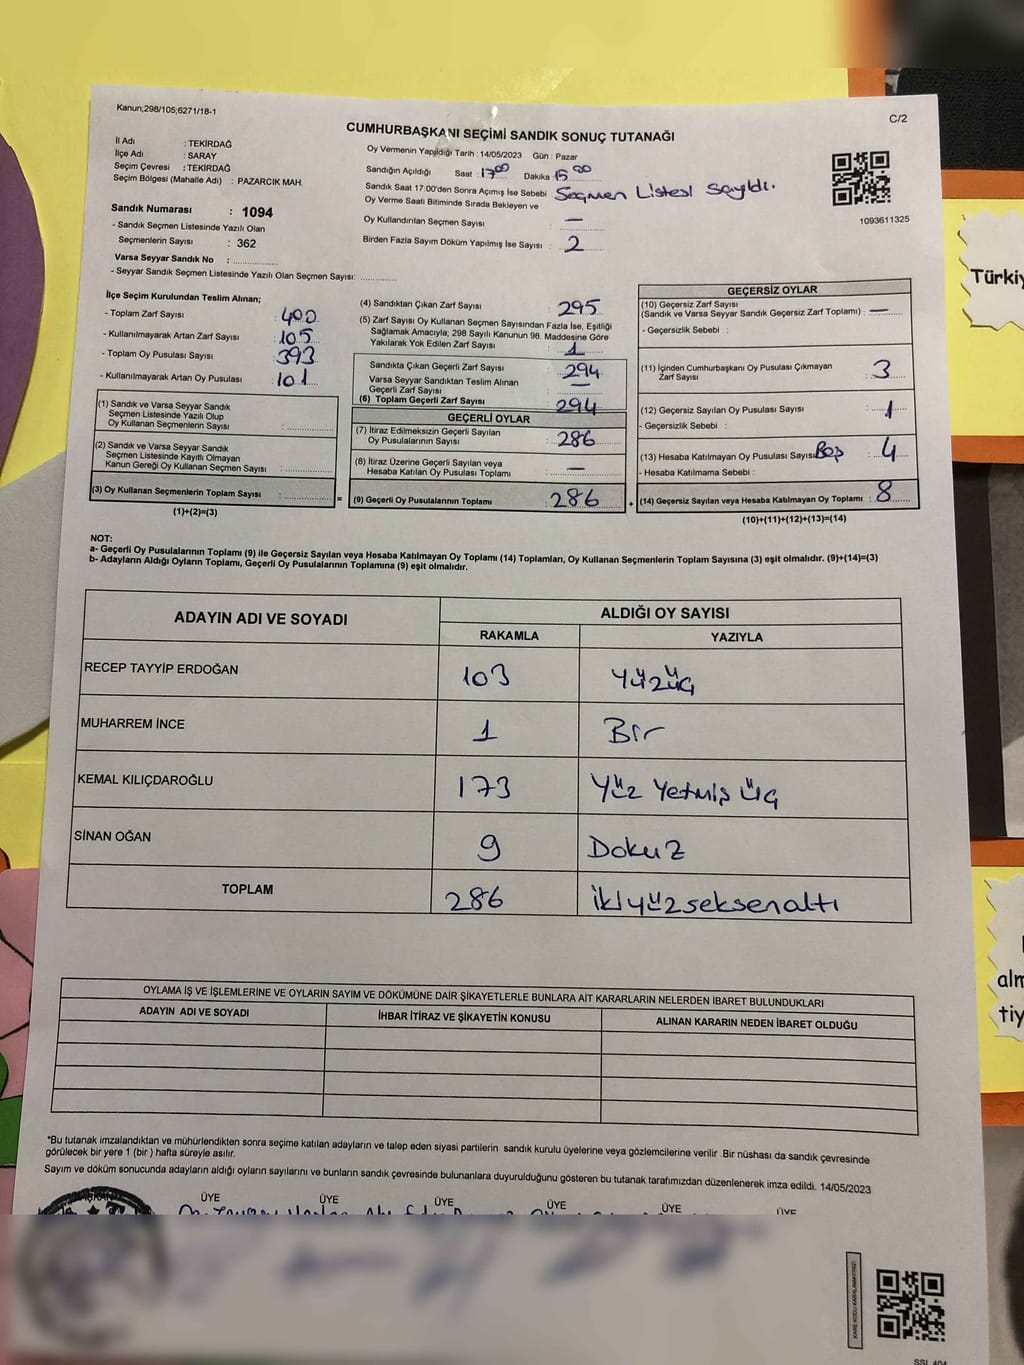 Kanun;298/105;6271/18-1
C/2
CUMHURBAŞKANI SEÇİMİ SANDIK SONUÇ TUTANAĞI
İl Adı : TEKİRDAĞ
İlçe Adı : SARAY
Seçim Çevresi : TEKİRDAĞ
Seçim Bölgesi (Mahalle Adı) : PAZARCIK MAH.
Sandık Numarası : 1094
- Sandık Seçmen Listesinde Yazılı Olan
Seçmenlerin Sayısı : 362
Varsa Seyyar Sandık No : ..............
- Seyyar Sandık Seçmen Listesinde Yazılı Olan Seçmen Sayısı: ............
Oy Vermenin Yapıldığı Tarih : 14/05/2023 Gün : Pazar
Sandığın Açıldığı Saat : 17 00 Dakika 15 00
Sandık Saat 17:00'den Sonra Açımış İse Sebebi : Seçmen Listesi Sayıldı.
Oy Verme Saati Bitiminde Sırada Bekleyen ve
Oy Kullandırılan Seçmen Sayısı : —
Birden Fazla Sayım Döküm Yapılmış İse Sayısı : 2
1093611325
İlçe Seçim Kurulundan Teslim Alınan;
- Toplam Zarf Sayısı : 400
- Kullanılmayarak Artan Zarf Sayısı : 105
- Toplam Oy Pusulası Sayısı : 393
- Kullanılmayarak Artan Oy Pusulası : 101
(1) Sandık ve Varsa Seyyar Sandık
Seçmen Listesinde Yazılı Olup
Oy Kullanan Seçmenlerin Sayısı : ..............
(2) Sandık ve Varsa Seyyar Sandık
Seçmen Listesinde Kayıtlı Olmayan
Kanun Gereği Oy Kullanan Seçmen Sayısı : ..............
(3) Oy Kullanan Seçmenlerin Toplam Sayısı : .............. =
(1)+(2)=(3)
(4) Sandıktan Çıkan Zarf Sayısı : 295
(5) Zarf Sayısı Oy Kullanan Seçmen Sayısından Fazla İse, Eşitliği
Sağlamak Amacıyla; 298 Sayılı Kanunun 98. Maddesine Göre
Yakılarak Yok Edilen Zarf Sayısı : 1
Sandıkta Çıkan Geçerli Zarf Sayısı : 294
Varsa Seyyar Sandıktan Teslim Alınan
Geçerli Zarf Sayısı : —
(6) Toplam Geçerli Zarf Sayısı : 294
GEÇERLİ OYLAR
(7) İtiraz Edilmeksizin Geçerli Sayılan
Oy Pusulalarının Sayısı : 286
(8) İtiraz Üzerine Geçerli Sayılan veya
Hesaba Katılan Oy Pusulası Toplamı : —
(9) Geçerli Oy Pusulalarının Toplamı : 286 +
GEÇERSİZ OYLAR
(10) Geçersiz Zarf Sayısı
(Sandık ve Varsa Seyyar Sandık Geçersiz Zarf Toplamı) : —
- Geçersizlik Sebebi :
(11) İçinden Cumhurbaşkanı Oy Pusulası Çıkmayan
Zarf Sayısı : 3
(12) Geçersiz Sayılan Oy Pusulası Sayısı : 1
- Geçersizlik Sebebi :
(13) Hesaba Katılmayan Oy Pusulası Sayısı Boş : 4
- Hesaba Katılmama Sebebi :
(14) Geçersiz Sayılan veya Hesaba Katılmayan Oy Toplamı : 8
(10)+(11)+(12)+(13)=(14)
NOT:
a- Geçerli Oy Pusulalarının Toplamı (9) ile Geçersiz Sayılan veya Hesaba Katılmayan Oy Toplamı (14) Toplamları, Oy Kullanan Seçmenlerin Toplam Sayısına (3) eşit olmalıdır. (9)+(14)=(3)
b- Adayların Aldığı Oyların Toplamı, Geçerli Oy Pusulalarının Toplamına (9) eşit olmalıdır.
ADAYIN ADI VE SOYADI ALDIĞI OY SAYISI
RAKAMLA YAZIYLA
RECEP TAYYİP ERDOĞAN 103 Yüzüç
MUHARREM İNCE 1 Bir
KEMAL KILIÇDAROĞLU 173 Yüz Yetmiş üç
SİNAN OĞAN 9 Dokuz
TOPLAM 286 ikiyüzseksenaltı
OYLAMA İŞ VE İŞLEMLERİNE VE OYLARIN SAYIM VE DÖKÜMÜNE DAİR ŞİKAYETLERLE BUNLARA AİT KARARLARIN NELERDEN İBARET BULUNDUKLARI
ADAYIN ADI VE SOYADI İHBAR İTİRAZ VE ŞİKAYETİN KONUSU ALINAN KARARIN NEDEN İBARET OLDUĞU
*Bu tutanak imzalandıktan ve mühürlendikten sonra seçime katılan adayların ve talep eden siyasi partilerin sandık kurulu üyelerine veya gözlemcilerine verilir .Bir nüshası da sandık çevresinde
görülecek bir yere 1 (bir ) hafta süreyle asılır.
Sayım ve döküm sonucunda adayların aldığı oyların sayılarını ve bunların sandık çevresinde bulunanlara duyurulduğunu gösteren bu tutanak tarafımızdan düzenlenerek imza edildi. 14/05/2023
ÜYE ÜYE ÜYE ÜYE ÜYE ÜYE
Türkiy
alm
tiy